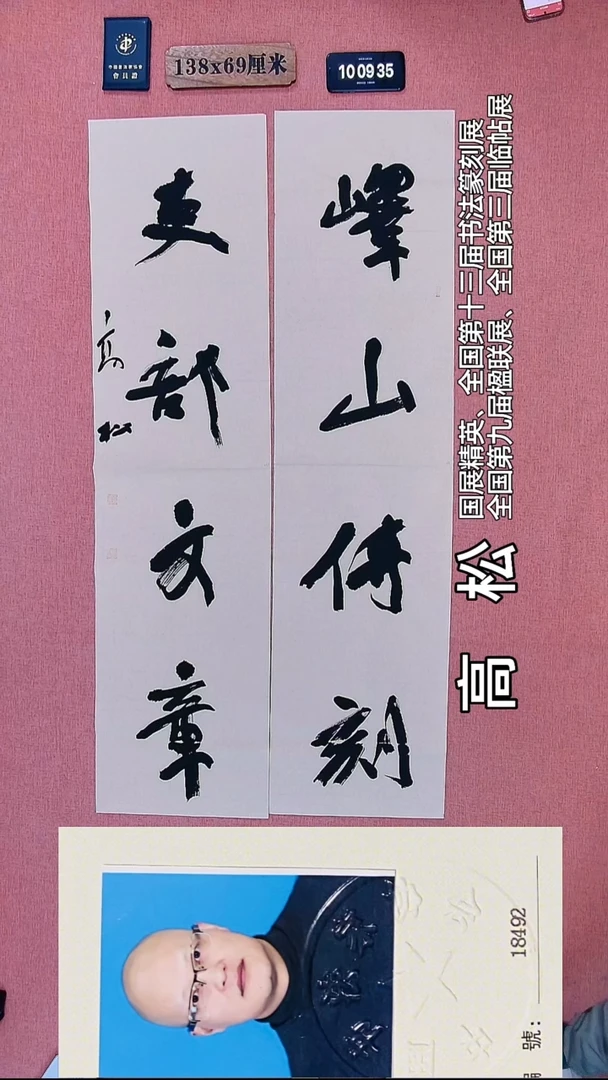 中国書法家協會
會員證
138x69厘米
10 09 35
嶧山傳刻
吏部文章
高松
国展精英、全国第十三届书法篆刻展
全国第九届楹联展、全国第三届临帖展
高松
號：18492